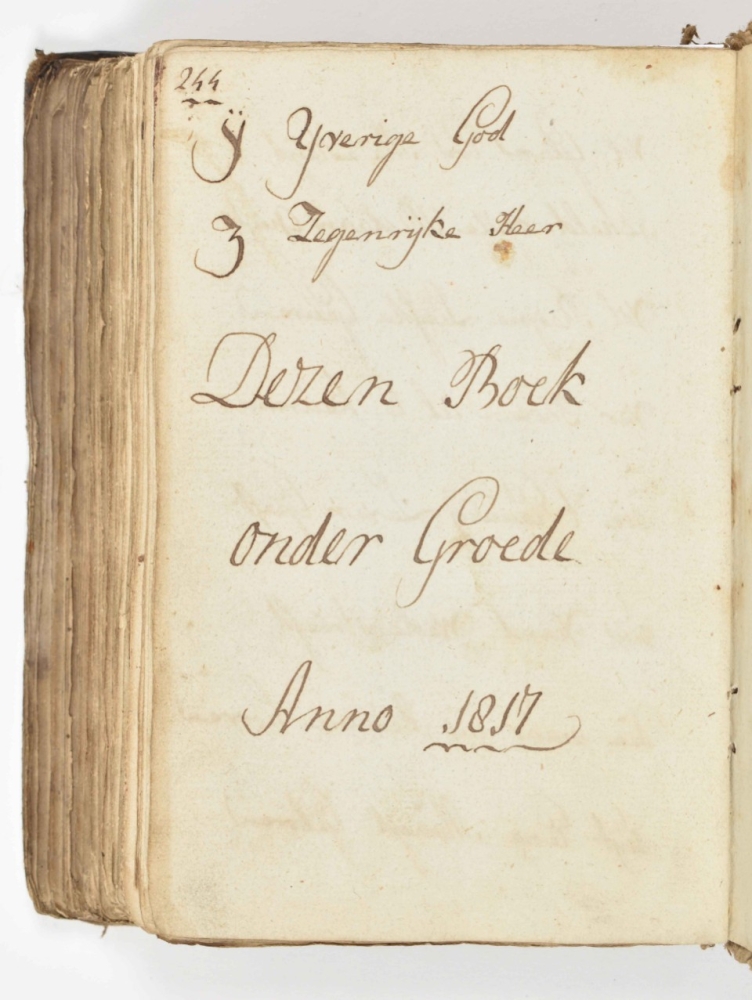 244
ÿ Yverige God
Z Zegenrijke Heer
Dezen Boek
onder Groede
Anno 1817